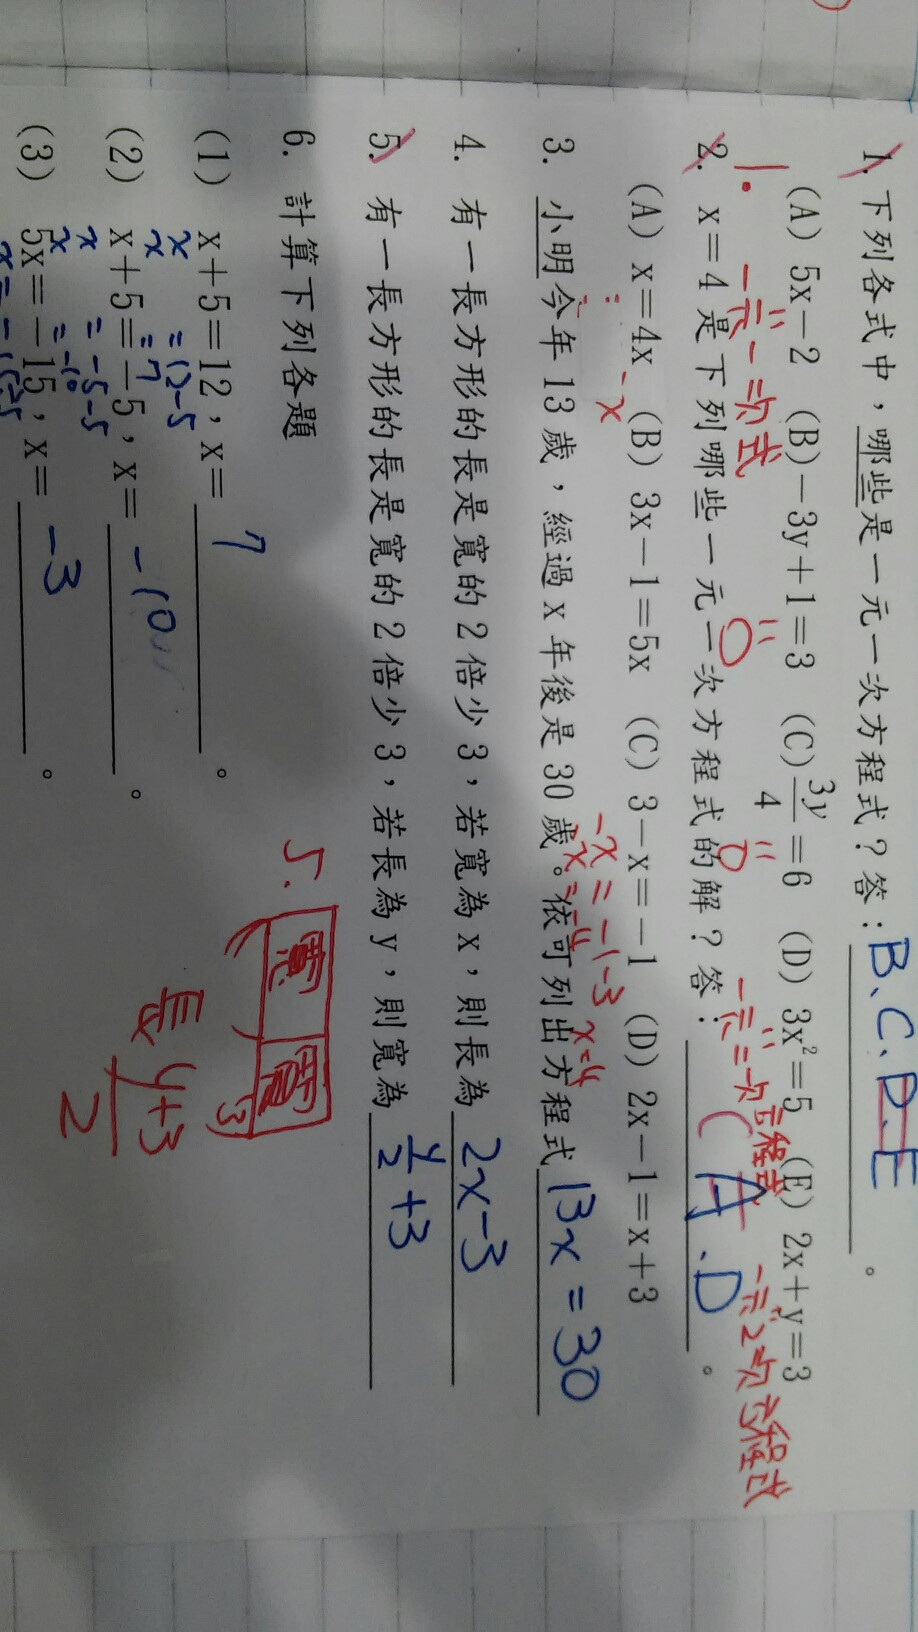 1. 下列各式中，哪些是一元一次方程式？答：B、C、D.E。
(A) 5x－2 (B)－3y＋1＝3 (C) 3y/4＝6 (D) 3x²＝5 (E) 2x＋y＝3
1. 一元一次式 O O 一元二次方程式 一元2次方程式
2. x＝4 是下列哪些一元一次方程式的解？答：C A.D。
(A) x＝4x (B) 3x－1＝5x (C) 3－x＝－1 (D) 2x－1＝x＋3
-x = -1-3
-x = -4 x=4
3. 小明今年 13 歲，經過 x 年後是 30 歲。依可列出方程式 13x = 30
4. 有一長方形的長是寬的 2 倍少 3，若寬為 x，則長為 2x-3
5. 有一長方形的長是寬的 2 倍少 3，若長為 y，則寬為 y/2 +3
5. 寬 寬 3
長 y+3/2
6. 計算下列各題
(1) x＋5＝12，x＝ 7。
x = 12-5
x = 7
(2) x＋5＝－5，x＝ -10。
x = -5-5
x = -10
(3) 5x＝－15，x＝ -3。